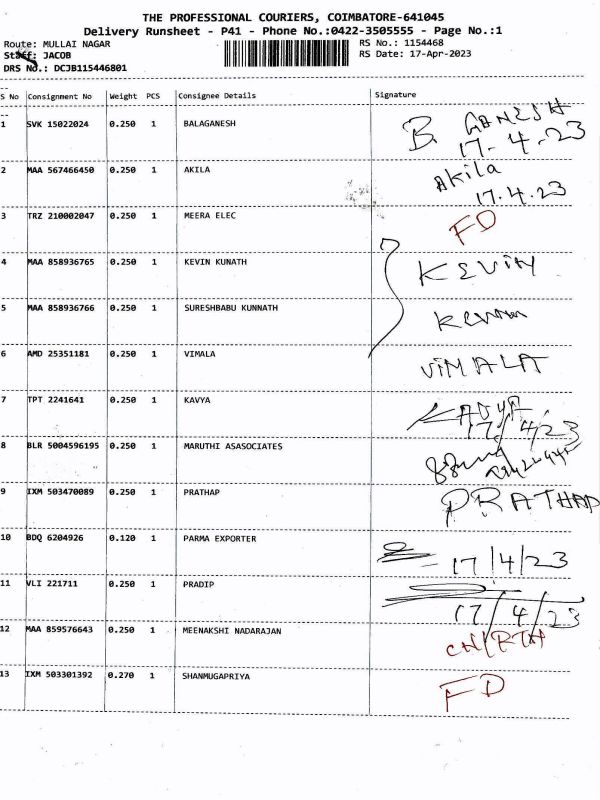 THE PROFESSIONAL COURIERS, COIMBATORE-641045
Delivery Runsheet - P41 - Phone No.:0422-3505555 - Page No.:1
Route: MULLAI NAGAR RS No.: 1154468
Staff: JACOB RS Date: 17-Apr-2023
DRS No.: DCJB115446801
S No Consignment No Weight PCS Consignee Details Signature
1 SVK 15022024 0.250 1 BALAGANESH B. GANESH
17-4-23
2 MAA 567466450 0.250 1 AKILA Akila
17.4.23
3 TRZ 210002047 0.250 1 MEERA ELEC FD
4 MAA 858936765 0.250 1 KEVIN KUNATH KEVIN
5 MAA 858936766 0.250 1 SURESHBABU KUNNATH Kevin
6 AMD 25351181 0.250 1 VIMALA ViMALA
7 TPT 2241641 0.250 1 KAVYA
17/4/23
8 BLR 5004596195 0.250 1 MARUTHI ASASOCIATES
9 IXM 503470089 0.250 1 PRATHAP PRATHAP
10 BDQ 6204926 0.120 1 PARMA EXPORTER 17/4/23
11 VLI 221711 0.250 1 PRADIP
17/4/23
12 MAA 859576643 0.250 1 MEENAKSHI NADARAJAN
13 IXM 503301392 0.270 1 SHANMUGAPRIYA FD